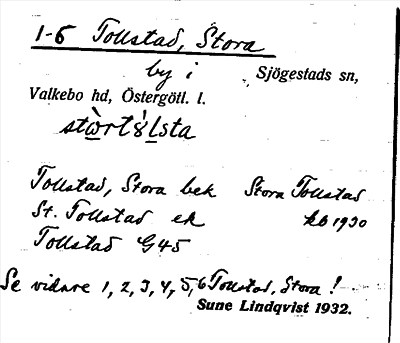 1-6 Tollstad, Stora
by i Sjögestads sn,
Valkebo hd, Östergötl. l.
stὼrt8́lsta
Tollstad, Stora bek Stora Tollstad
St. Tollstad ek kb 1930
Tollstad G45
Se vidare 1, 2, 3, 4, 5, 6 Tollstad, Stora!
Sune Lindqvist 1932.